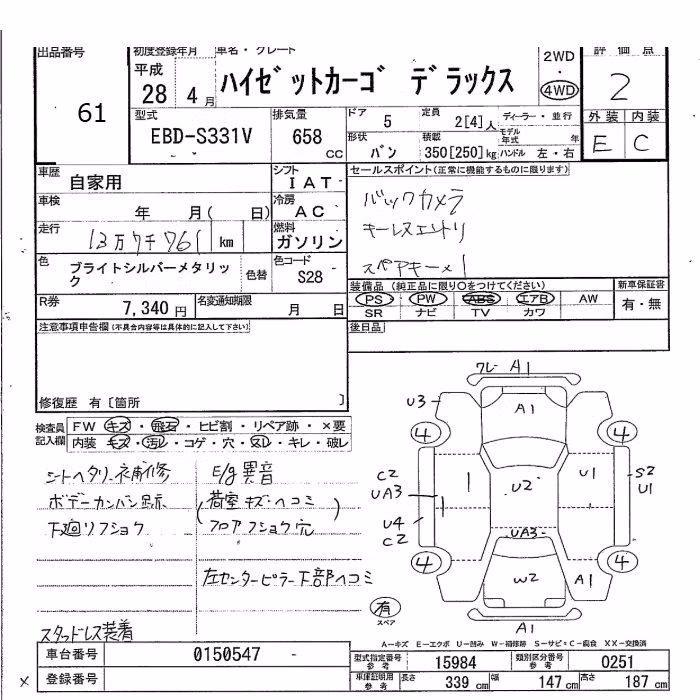 出品番号
61
初度登録年月
平成
28 4月
車名・グレード
ハイゼットカーゴ デラックス
2WD
・
4WD
評価点
2
型式
EBD-S331V
排気量
658 CC
ドア
5
定員
2[4]人
ディーラー・並行
モデル年式 年
形状
バン
積載
350[250]kg
ハンドル 左・右
外装 内装
E C
車歴
自家用
シフト
I AT
車検
年 月( 日)
冷房
AC
走行
13万7千761 km
燃料
ガソリン
色
ブライトシルバーメタリック
色替
色コード
S28
R券
7,340円
名変通知期限
月 日
セールスポイント(正常に機能するものに限ります)
バックカメラ
キーレスエントリ
スペアキー×1
装備品(純正品に限り○をつけてください)
PS PW ABS エアB AW
SR ナビ TV カワ
新車保証書
有・無
後日品
注意事項申告欄(不具合内容等は具体的に記入して下さい)
修復歴 有〔箇所 〕
検査員記入欄
FW キズ・飛石・ヒビ割・リペア跡・×要
内装 キズ・汚レ・コゲ・穴・スレ・キレ・破レ
シートヘタリ、補修
ボデーカンバン跡
下廻リフショク
スタッドレス装着
E/g異音
(荷室キズヘコミ
フロアフショク穴)
左センターピラー下部ヘコミ
フレ- A1
U3
A1
4 4
C2
UA3
U4
C2
U2
U1
S2
U1
UA3
4 4
W2
A1
A1
有
スペア
A-キズ E-エクボ U-凹み W-補修跡 S-サビ・C-腐食 XX-交換済
車台番号
0150547 -
登録番号
×
型式指定番号 参考
15984
類別区分番号 参考
0251
車庫証明用 参考
長さ 339cm 幅 147cm 高さ 187cm